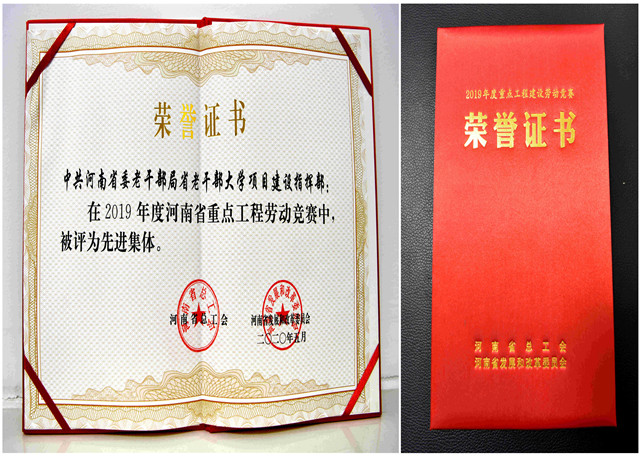 荣誉证书
中共河南省委老干部局省老干部大学项目建设指挥部：
在2019年度河南省重点工程劳动竞赛中，
被评为先进集体。
河南省总工会
河南省发展和改革委员会
二〇二〇年五月
河南省总工会
河南省发展和改革委员会
2019年度重点工程建设劳动竞赛
荣誉证书
河南省总工会
河南省发展和改革委员会